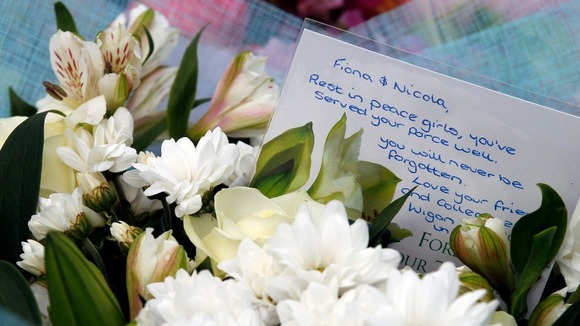 Fiona & Nicola,
Rest in peace girls, you've
served your force well.
you will never be
forgotten.
Love your
and
Wigan
FOR
OUR